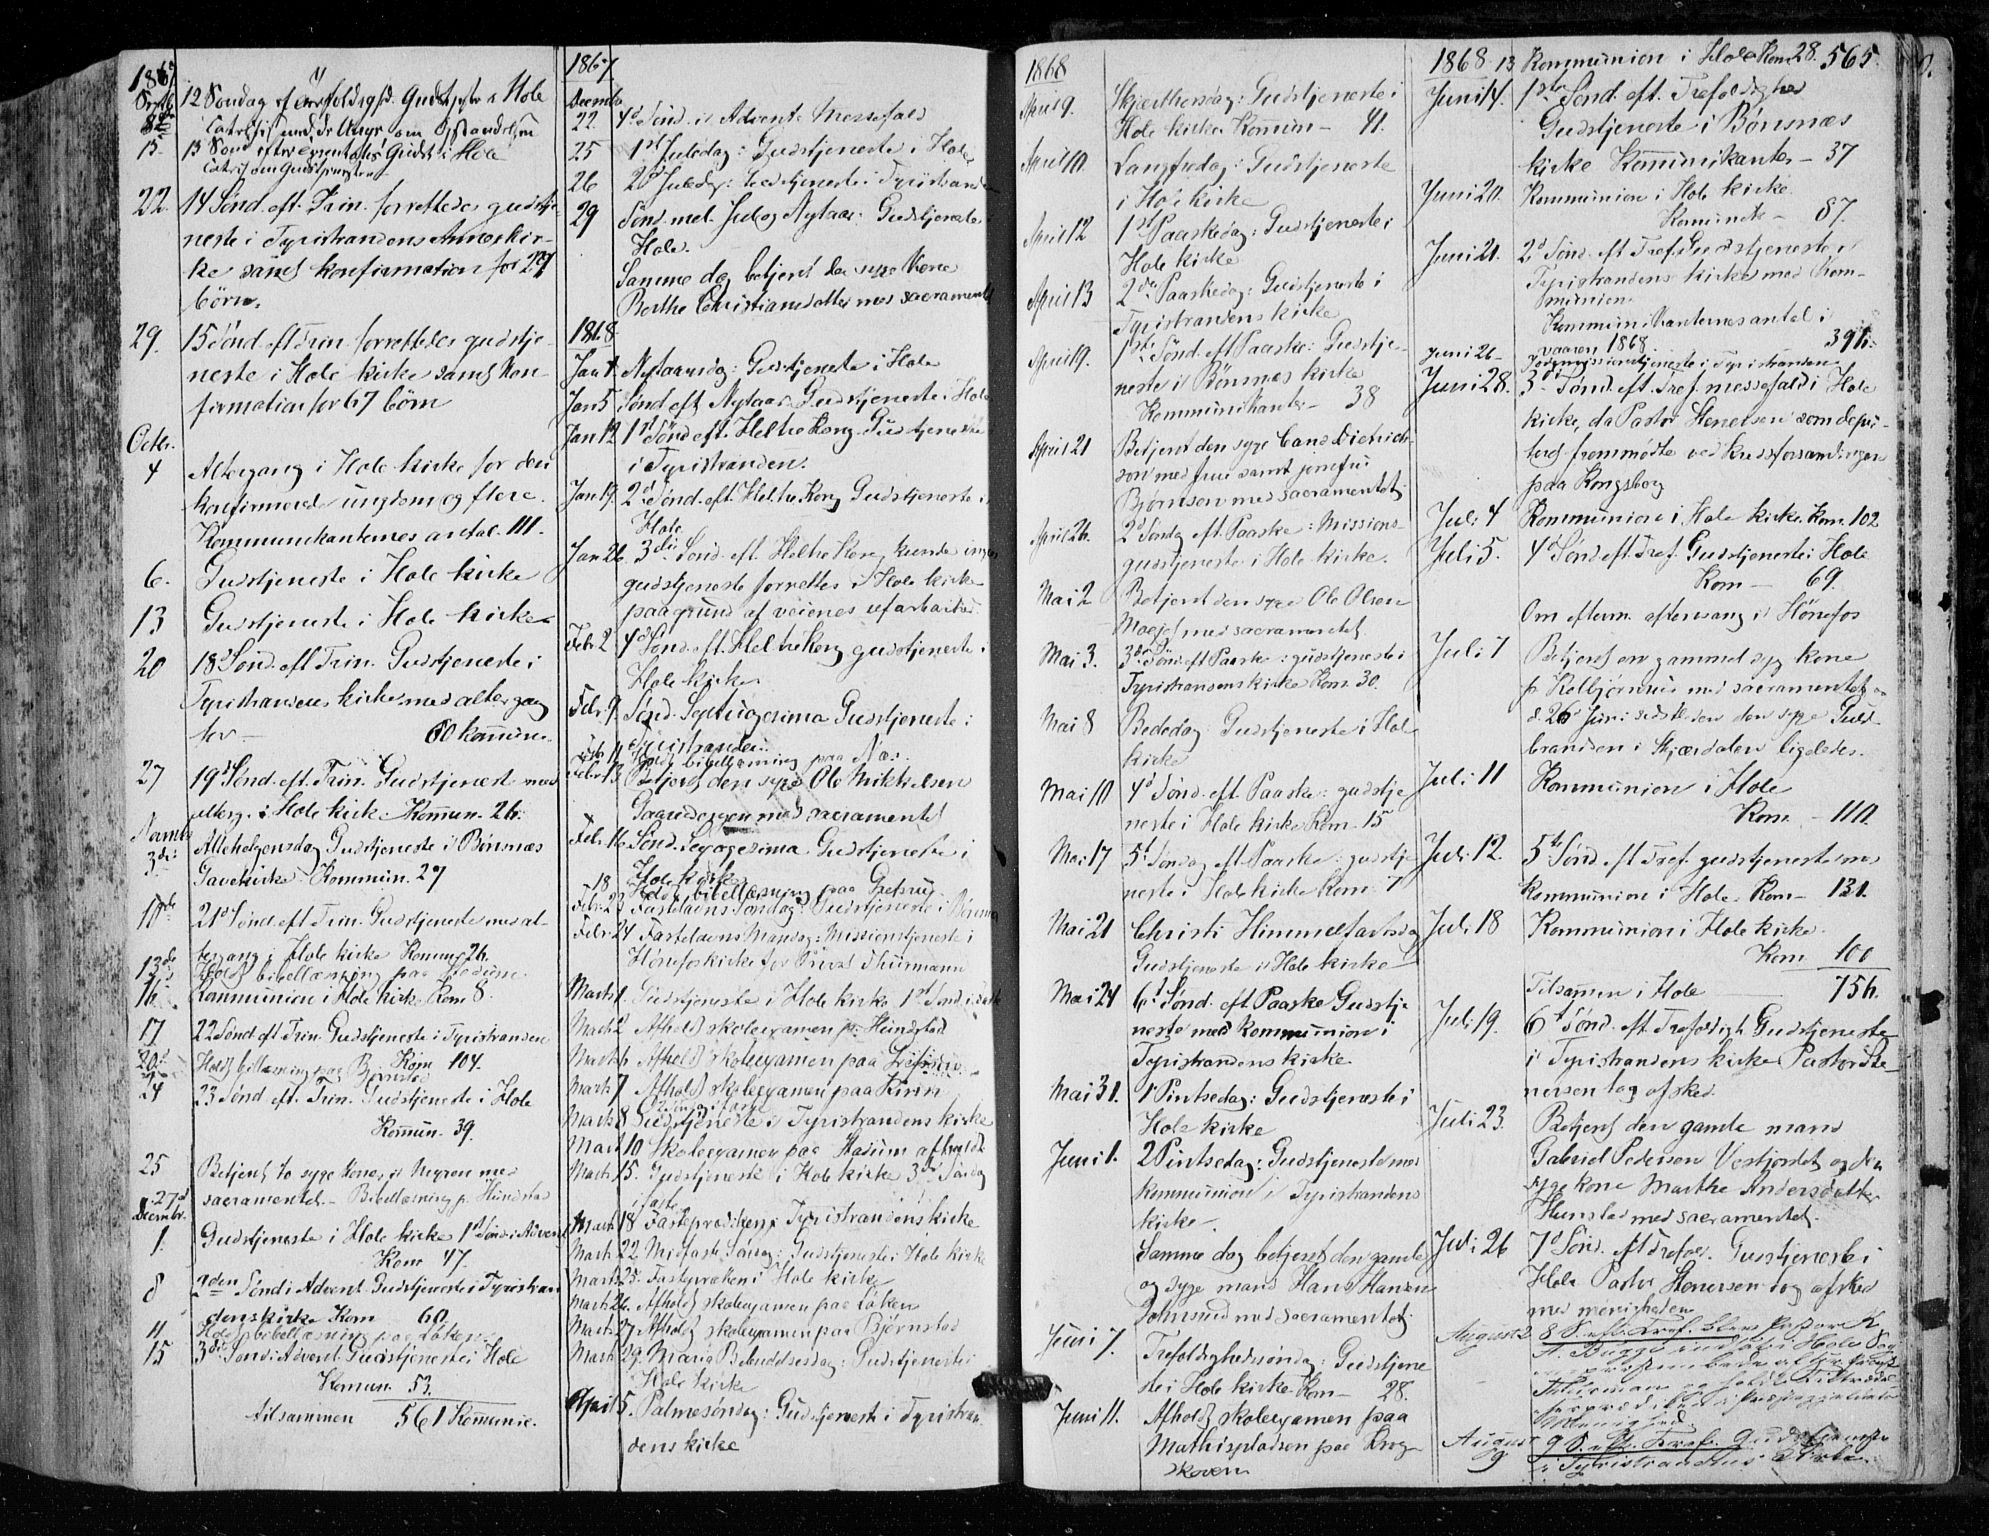 1867
Septbr 8de
12 Søndag ef Trefoldighd. Gudstjeste i Hole
Catechis med de Unge om Opstandelsen
15. 13 Sønd efter Trinitatis Gudst i Hole
Catechis om Gudstjenesten
22. 14 Sønd. eft. Trin. forrettedes gudstje
neste i Tyristrandens Anneskir-
ke samt konfirmation for 27
børn.
29. 15 Sønd eft Trin. forrettedes gudstje-
neste i Hole kirke samt kon-
firmation for 67 børn
Octbr.
4 Altergang i Hole kirke for den
konfirmerede ungdom og flere.
Kommunikanternes antal 111.
6. Gudstjeneste i Hole kirke
13 Gudstjeneste i Hole kirke
20 18d Sønd. eft Trin. Gudstjeneste i
Tyristrandens kirke med alter gang
for — 60 kommun.
27 19d Sønd. eft. Trin. Gudstjeneste med
alterg. i Hole kirke Kommun. 26.
Novmbr
3die Allehelgensdag Gudstjeneste i Bønsnæs
Gavekirke Kommun. 27
10de 21d Sønd eft Trin. Gudstjeneste med al-
tergang i Hole kirke Kommun 26.
13de Holdt bibellæsning paa
16. Kommunion i Hole kirke Kom 8.
17 22 Sønd eft Trin. Gudstjeneste i Tyristranden
Kom 104.
20d Holdt bibellæsning paa Bjørnstad
24 23 Sønd. eft. Trin. Gudstjeneste i Hole
Kommun. 39.
25 Betjent to syge koner i med
sacramentet. —
27d Bibellæsning p. Hundstad
Decembr.
1. Gudstjeneste i Hole kirke 1st Sønd i Advent
Kom 47.
8 2den Sønd i Advent Gudstjeneste i Tyristran
denskirke Kom 60.
11 Holdt bibellæsning paa Løken
15 3die Sønd i Advent Gudstjeneste i Hole
Komun. 53.
tilsammen 561 Kommunic.
1867
Decembr
22. 4d Sønd. i Advent Messefald
25 1st Juledag: Gudstjeneste i Hole
26 2d Juledag: Gudstjeneste i Tyristranden
29 Sønd. mel. Jul og Nytaar: Gudstjeneste
Hole.
Samme dag betjent den syge Kone
Berthe Christiansdatter med sacramentet
1868
Jan 1. Nytaarsdag: Gudstjeneste i Hole
Jan 5 Sønd eft Nytaar Gudstjeneste i Hole
Jan 12 1st Sønd eft. Heltre Kong. Gudstjeneste
i Tyristranden.
Jan 19. 2d Sønd. eft. Heltre Kong Gudstjeneste i
Hole
Jan 26 3die Sønd. eft. Heltre Kong kunde ingen
gudstjeneste forrettes i Hole kirke
paa grund af veienes ufarbarhed
Febr 2 4d Sønd. eft. Heltre Kong gudstjeneste i
Hole kirke
Febr. 9. Sønd. Septuagesima Gudstjeneste i
Tyristranden
Feb. 11 Holdt bibellæsning paa Næs.
Febr 13 Betjent den syge Ole Mikkelsen
med sacramentet
Febr. 16 Sønd. Sexagesima Gudstjeneste i
Hole kirke
18 Holdt bibellæsning paa Gjesrud
Febr. 23 Fastelavns Søndag: Gudstjeneste i Bønsnæs
Febr. 24 Fastelavns Mandag: Missionstjeneste i
Hønefoskirke for Provst Thurmann
Marts 1. Gudstjeneste i Hole kirke 1st Sønd. i faste
Marts 2 Afholdt skoleexamen p. Hundstad
Marts 6 Afholdt skoleexamen paa
Marts 7 Afholdt skoleexamen paa
Marts 8 2 Sønd. i faste Gudstjeneste i Tyristrandens kirke
Mart 10 Skoleexamen paa afholdt
Marts 15. Gudstjeneste i Hole kirke 3die Søndag
i faste
Marts 18 Fasteprædiken i Tyristrandens kirke
Marts 22. Midfaste Søndag: Gudstjeneste i Hole kirke
Marts 25. Fasteprædiken i Hole kirke
Marts 26. Afholdt skoleexamen paa Løken
Marts 27 Afholdt skoleexamen paa Bjørnstad
Marts 29. Maria Bebudelsesdag: Gudstjeneste i
Hole kirke
April 5. Palmesøndag: Gudstjeneste i Tyristran
dens kirke
1868
April 9. Skjærthorsdag: Gudstjeneste i
Hole kirke. Kommun — 41.
April 10. Langfredag: Gudstjeneste
i Hole kirke
April 12 1st Paaskedag: Gudstjeneste i
Hole kirke
April 13 2den Paaskedag: Gudstjeneste i
Tyristrandens kirke
April 19. 1ste Sønd. eft Paaske: Gudstje-
neste i Bønsnes kirke
Kommunikanter — 38
April 21 Betjent den syge Dietrich-
son med frue samt jomfru
Bjørnson med sacramentet.
April 26. 2d Søndag eft. Paaske: Missions-
gudstjeneste i Hole kirke.
Mai 2 Betjent den syge Ole Olsen
Moejet med sacramentet
Mai 3. 3die Sønd. eft Paaske: gudstjeneste i
Tyristrandens kirke Kom. 30.
Mai 8 Bededag Gudstjeneste i Hole
kirke
Mai 10 4d Sønd. eft. Paaske: gudstje
neste i Hole kirke Kom — 15
Mai 17 5t Søndag eft. Paaske: gudstje
neste i Hole kirke Kom — 7
Mai 21 Christi Himmelfartsdag
Gudstjeneste i Hole kirke
Mai 24 6t Sønd. eft Paaske Gudstje
neste med kommunion i
Tyristrandens kirke
Mai 31. 1 Pintsedag: Gudstjeneste i
Hole kirke
Juni 1. 2 Pintsedag: Gudstjeneste med
kommunion i Tyristrandens
kirke.
Samme dag betjent den gamle
og syge mand Hans Hansen
med sacramentet.
Juni 7. Trefoldighedssøndag: Gudstjene
ste i Hole kirke Kom — 28.
Juni 11. Afholdt skoleexamen paa
Mathispladsen paa Krog-
skoven
1868 565.
13 Kommunion i Hole Kom 28.
Juni 14. 1ste Sønd. eft. Trefoldighed
Gudstjeneste i Bønsnæs
kirke Kommunikanter — 37
Juni 20. Kommunion i Hole kirke.
Komunik — 87.
Juni 21. 2d Sønd. eft Tref. Gudstjeneste i
Tyristrandens kirke med Kom-
munion.
Kommunikanternes antal i
vaaren 1868 391.
Juni 26 — missionstjeneste i Tyristranden
Juni 28. 3die Sønd. eft. Tref. messefald i Hole
kirke, da Pastor Stenersen som depu-
teret fremmødte ved kredsforsamlingen
paa Kongsberg
Juli 4 Kommunion i Hole kirke. Kom. 102
Juli 5. 4d Sønd eft. Tref. Gudstjeneste i Hole
Kom — 69.
Om efterm. aftensang i Hønefos
Juli 7 Betjent en gammel syg kone
p. Kolbjørnrud med sacramentet og
d. 26de Juni sidstleden den syge Guld-
branden i Skjærdalen ligeledes.
Juli 11 Kommunion i Hole
Kom. — 110.
Juli 12. 5te Sønd. eft Tref. gudstjeneste med
kommunion i Hole. Kom — 131.
Juli 18 Kommunion i Hole kirke.
Kom 100
Tilsammen i Hole 756.
Juli 19. 6t Sønd. eft Trefoldigh. Gudstjeneste
i Tyristrandens kirke Pastor Ste
nersen tog afsked.
Juli 23. Betjent den gamle mand
Gabriel Pedersen Vestjordet og den
syge kone Marthe Andersdatter
Hunstad med sacramentet.
Juli 26 7d Sønd. eft Trefol. Gudstjeneste i
Hole. Pastor Stenersen tog afsked
med menigheden
August 2 8 S. efter Tref. blev Pastor K
Bugge indsat i Hole Sog
August 9. 9 S. eft. Tref. Gudstjeneste
i Tyristrandens Kirke.